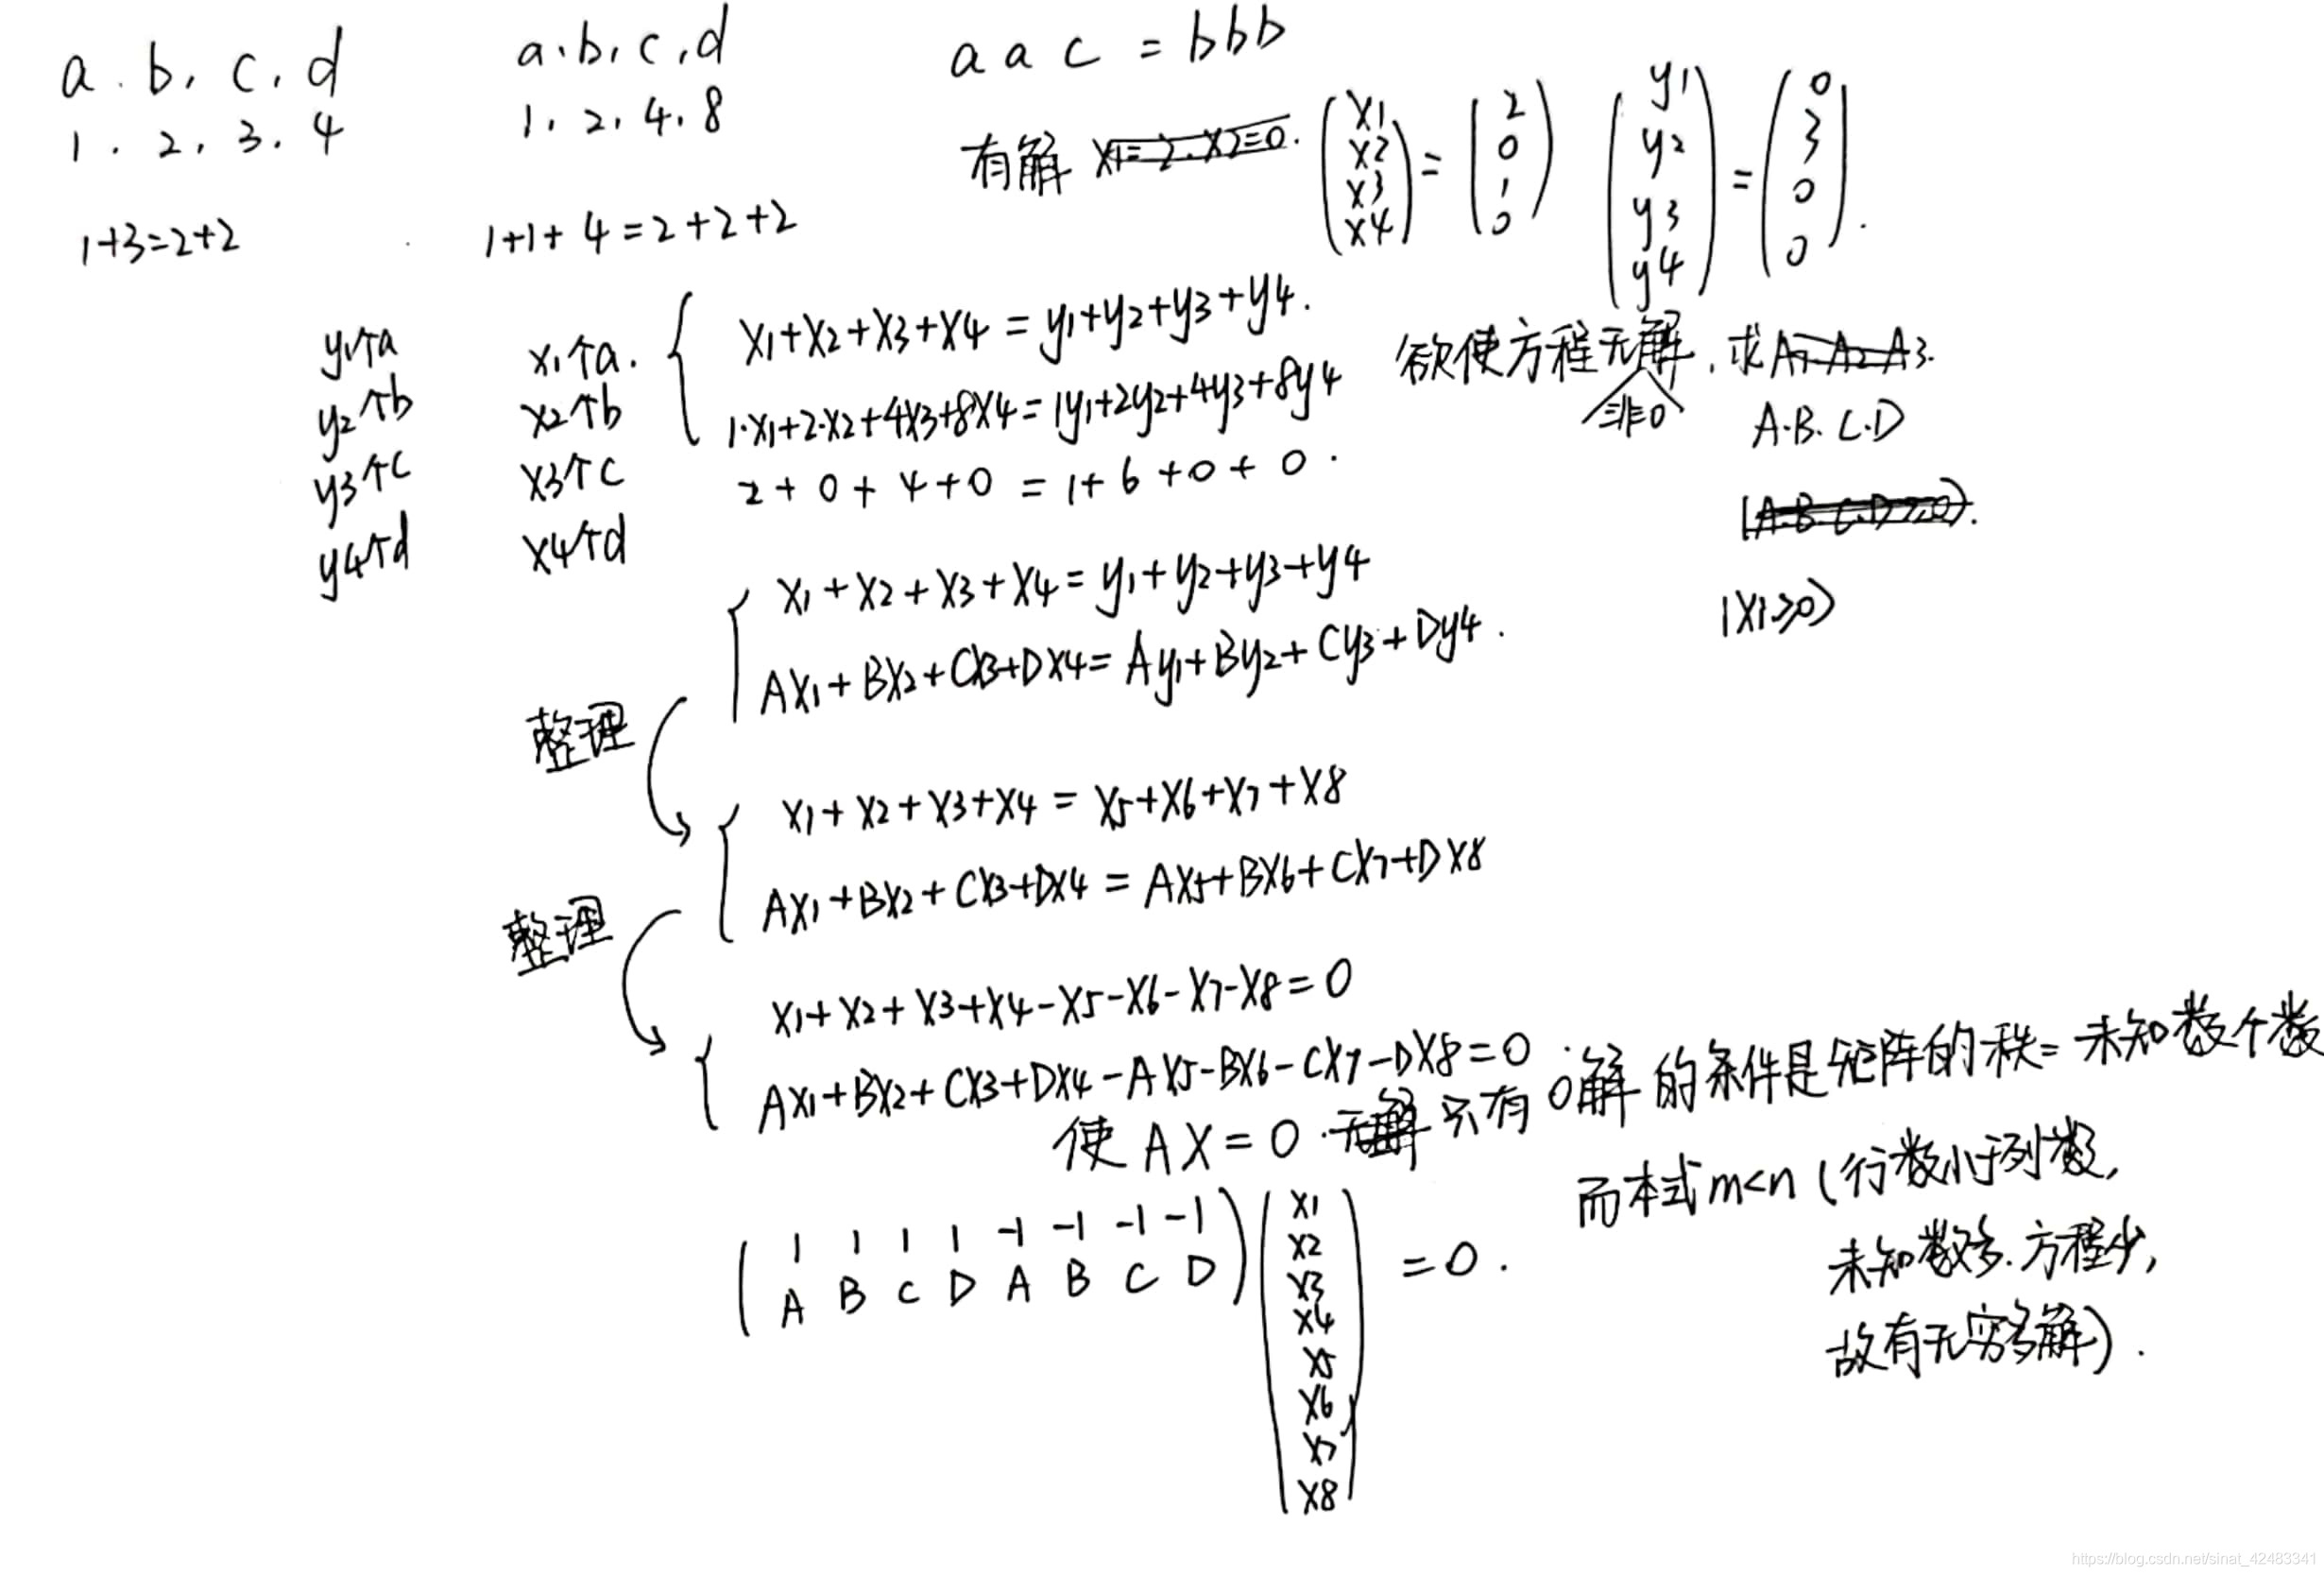 a . b, c, d
1 . 2, 3. 4
1+3=2+2
a.b, c, d
1. 2, 4. 8
1+1+4=2+2+2
a a c = bbb
有解 X1=2.X2=0. (X1 X2 X3 X4) = (2 0 1 0) (y1 y2 y3 y4) = (0 3 0 0).
y1个a
y2个b
y3个c
y4个d
x1个a.
x2个b
x3个c
x4个d
X1+X2+X3+X4 = y1+y2+y3+y4.
1·X1+2·X2+4X3+8X4=1y1+2y2+4y3+8y4
2+0+4+0 = 1+6+0+0.
欲使方程无解, 求A1 A2 A3.
非0
A.B.C.D
(A.B.C.D≥0).
|X|≥0)
X1+X2+X3+X4=y1+y2+y3+y4
AX1+BX2+CX3+DX4=Ay1+By2+Cy3+Dy4.
整理
X1+X2+X3+X4 = X5+X6+X7+X8
AX1+BX2+CX3+DX4 = AX5+BX6+CX7+DX8
整理
X1+X2+X3+X4-X5-X6-X7-X8=0
AX1+BX2+CX3+DX4-AX5-BX6-CX7-DX8=0
使AX=0.无解只有0解的条件是矩阵的秩=未知数个数
而本式m<n(行数小于列数,
未知数多.方程少,
故有无穷多解).
1 1 1 1 -1 -1 -1 -1
A B C D A B C D
X1
X2
X3
X4
X5
X6
X7
X8
=0.
https://blog.csdn.net/sinat_42483341